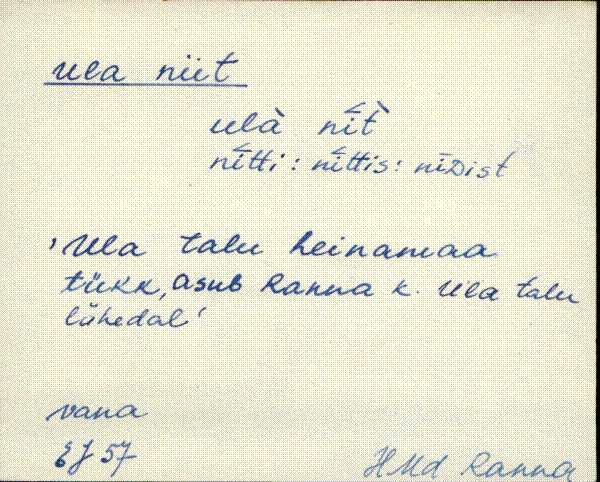 Ula niit
ulà nī̆t̀
nī̆tti : nī̆ttis : nīDist
'Ula talu heinamaa
tükk, asub Ranna k. Ula talu
lähedal'
vana
EJ 57
HMd Ranna